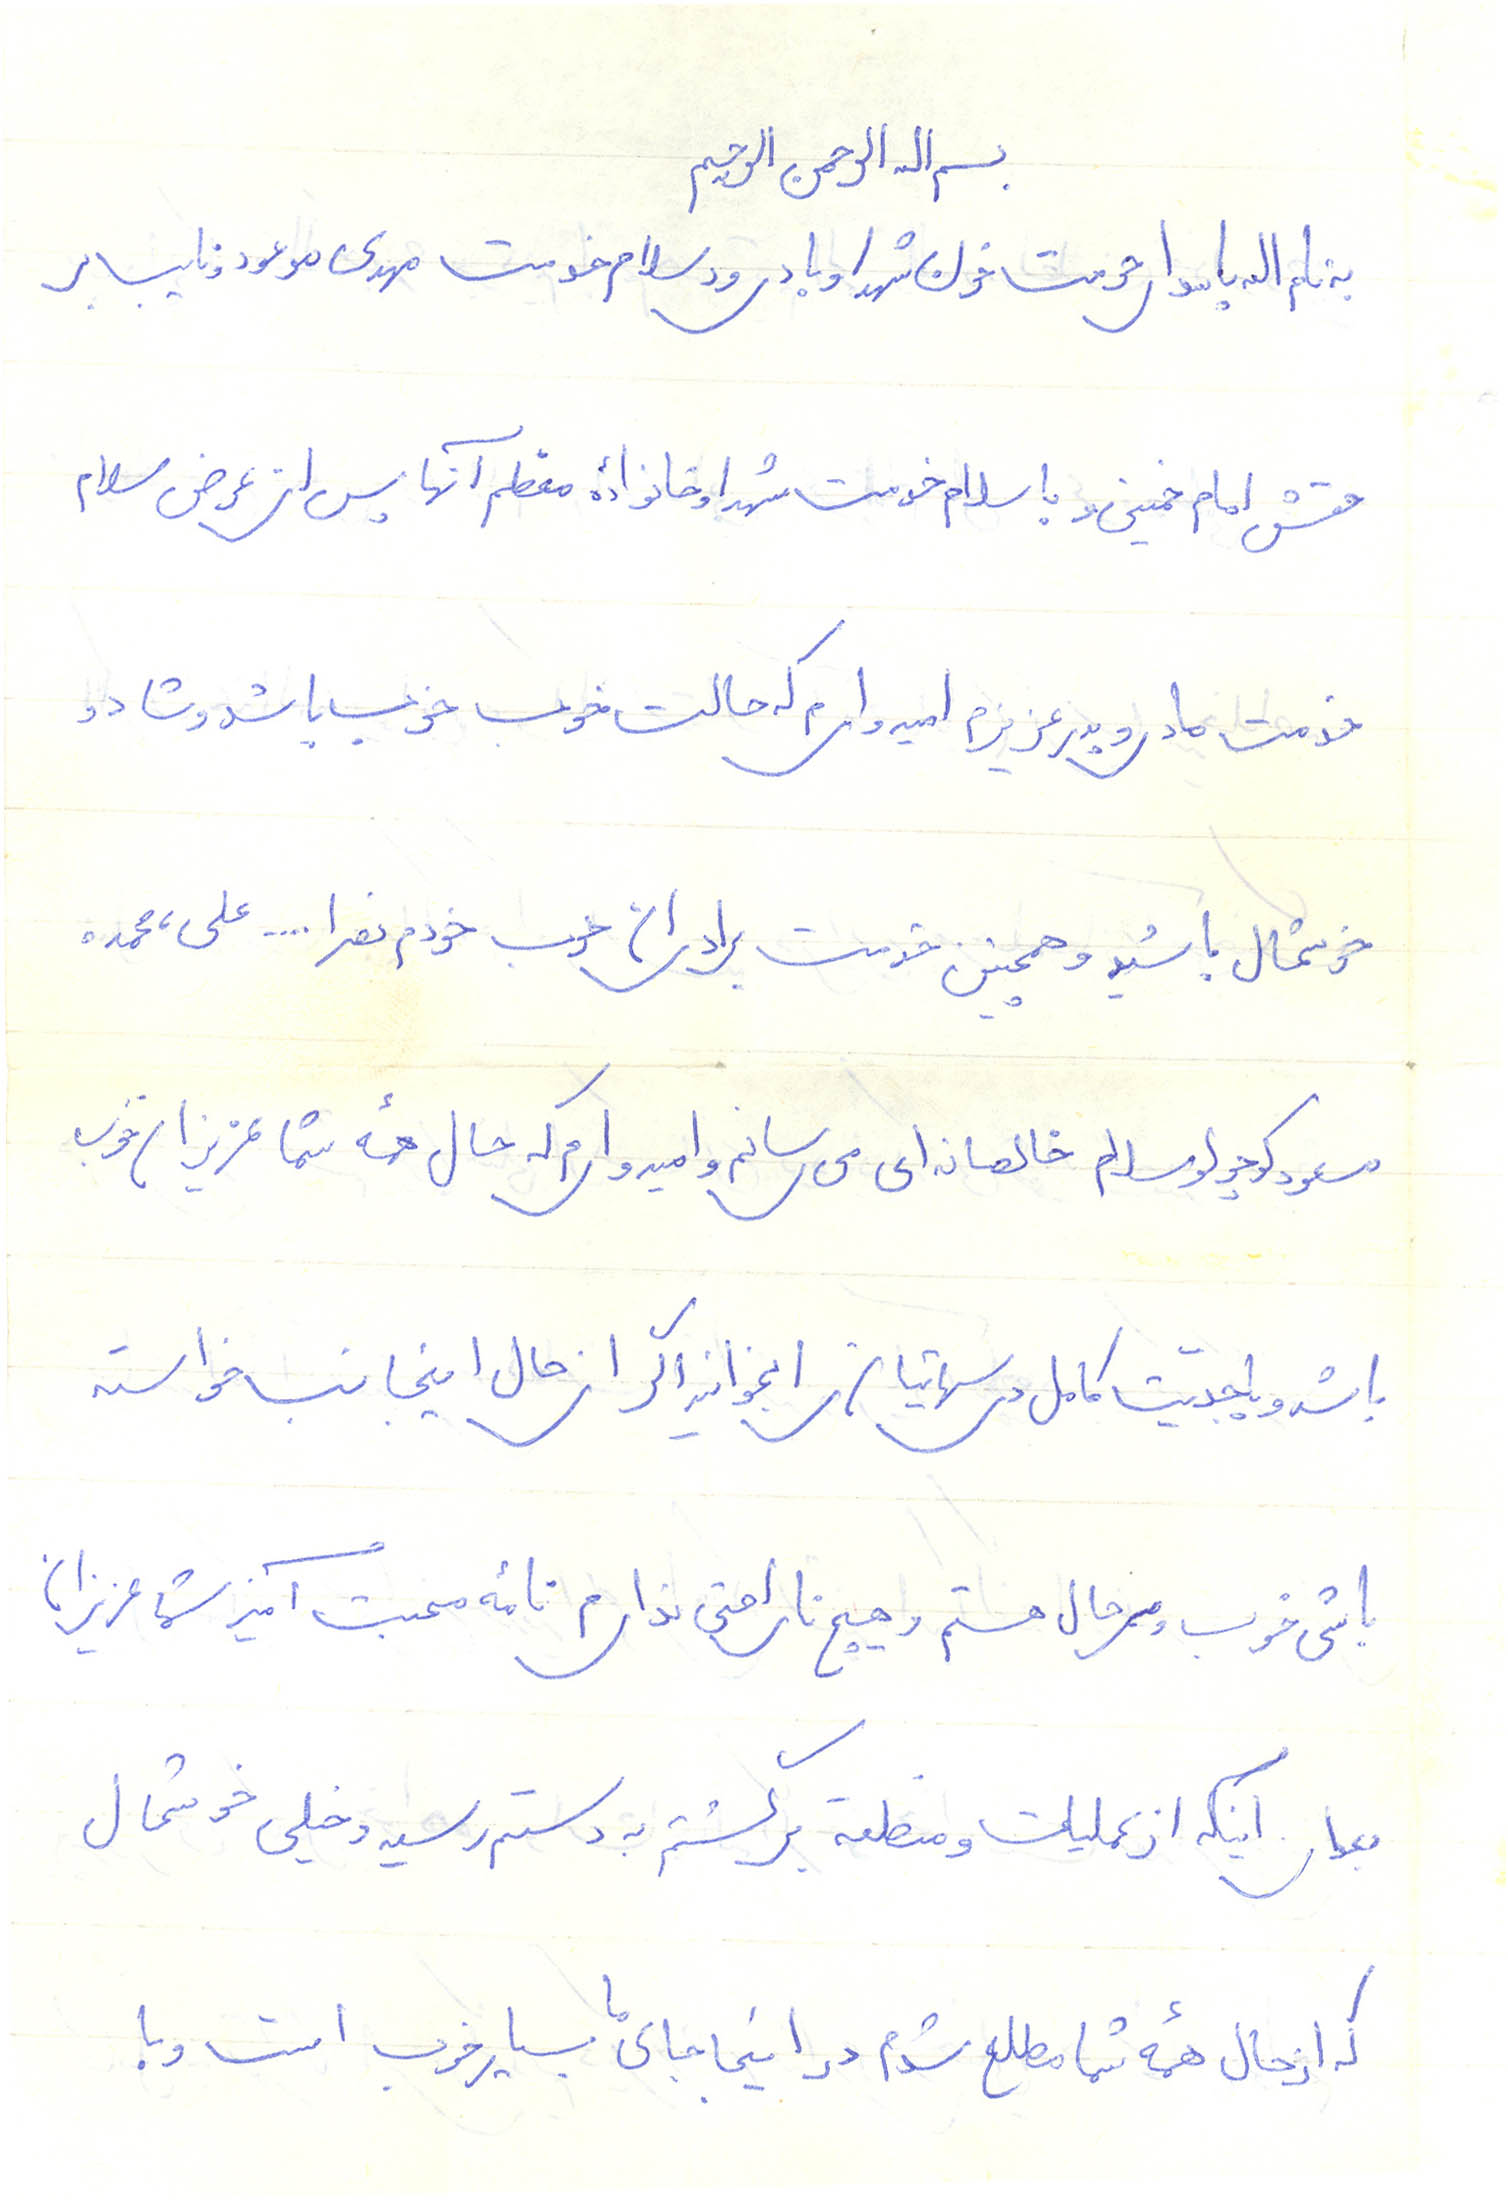 بسم اله الرحمن الرحیم
به نام اله پاسدار حرمت خون شهدا و با درود سلام خدمت مهدی موعود و نایب بر
حقش امام خمینی و با سلام خدمت شهدا و خانوادهٔ معظم آنها پس از عرض سلام
خدمت مادر و پدر عزیزم امیدوارم که حالت خوب خوب باشد و شاد و
خوشحال باشید و همچنین خدمت برادران خوب خودم .... علی، محمد،
مسعود کوچولو سلام خالصانه ای می رسانم و امیدوارم که حال همهٔ شما عزیزان خوب
باشد و با جدیت کامل درسهایتان را بخوانید اگر از حال اینجانب خواسته
باشی خوب و سرحال هستم و هیچ ناراحتی ندارم نامهٔ محبت آمیز شما عزیزان
بعد از اینکه از عملیات و منطقه برگشتم به دستم رسید و خیلی خوشحال
که از حال همهٔ شما مطلع شدم در اینجا جای ما بسیار خوب است و با